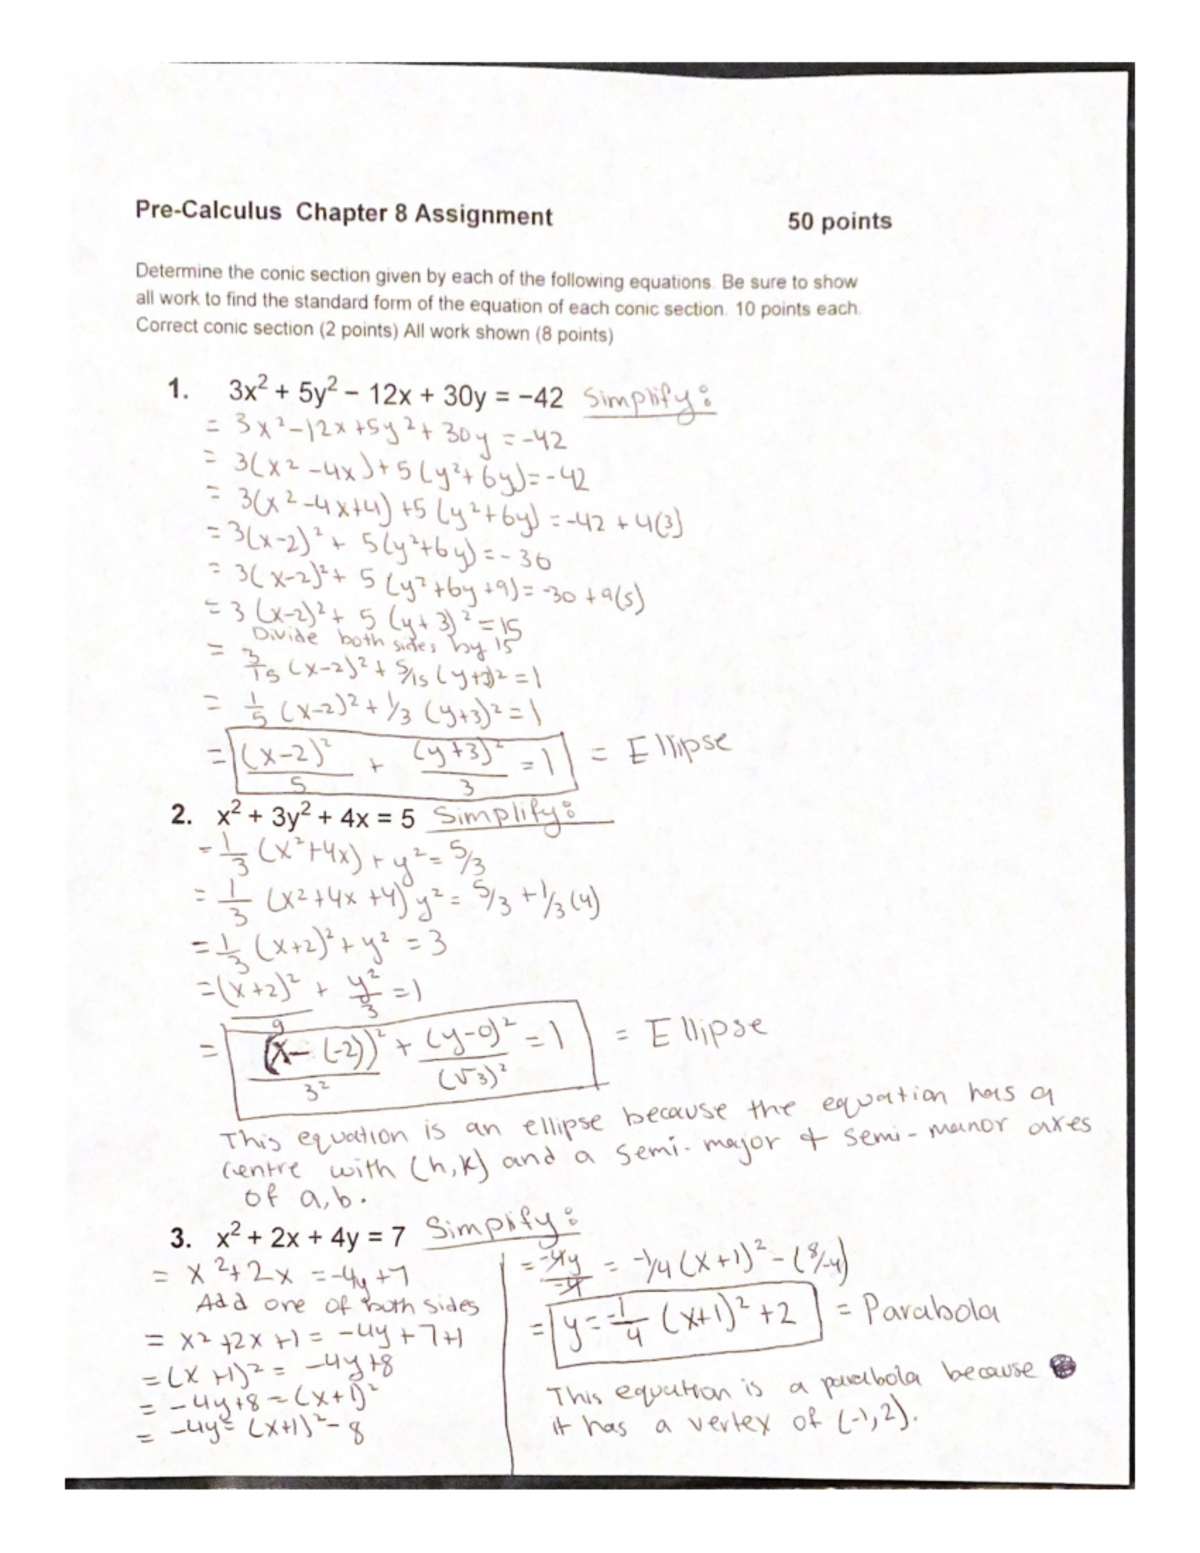 Pre-Calculus Chapter 8 Assignment 50 points
Determine the conic section given by each of the following equations. Be sure to show
all work to find the standard form of the equation of each conic section. 10 points each.
Correct conic section (2 points) All work shown (8 points)
1. 3x² + 5y² − 12x + 30y = −42 Simplify:
= 3x²-12x+5y²+30y=-42
= 3(x²-4x)+5(y²+6y)=-42
= 3(x²-4x+4)+5(y²+6y)=-42+4(3)
= 3(x-2)²+5(y²+6y)=-30
= 3(x-2)²+5(y²+6y+9)=-30+9(5)
= 3(x-2)²+5(y+3)²=15
Divide both sides by 15
= 3/15(x-2)²+5/15(y+3)²=1
= 1/5(x-2)²+1/3(y+3)²=1
= (x-2)²/5 + (y+3)²/3 = 1 = Ellipse
2. x² + 3y² + 4x = 5 Simplify:
= 1/3(x²+4x)+y²=5/3
= 1/3(x²+4x+4) y²=5/3+1/3(4)
= 1/3(x+2)²+y²=3
= (x+2)²/9 + y²/3 = 1
= (x-(-2))²/3² + (y-0)²/(√3)² = 1 = Ellipse
This equation is an ellipse because the equation has a
centre with (h,k) and a semi-major & semi-manor axes
of a,b.
3. x² + 2x + 4y = 7 Simplify:
= x²+2x=-4y+7
Add one of both sides
= x²+2x+1=-4y+7+1
= (x+1)²=-4y+8
= -4y+8=(x+1)²
= -4y=(x+1)²-8
= -4y/-4 = -1/4(x+1)²-(8/-4)
= y=-1/4(x+1)²+2 = Parabola
This equation is a parabola because
it has a vertex of (-1,2).